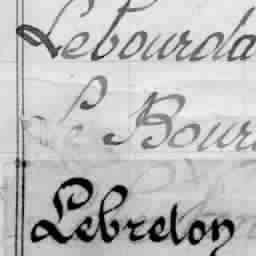 Lebourda
Le Bour
Lebreton